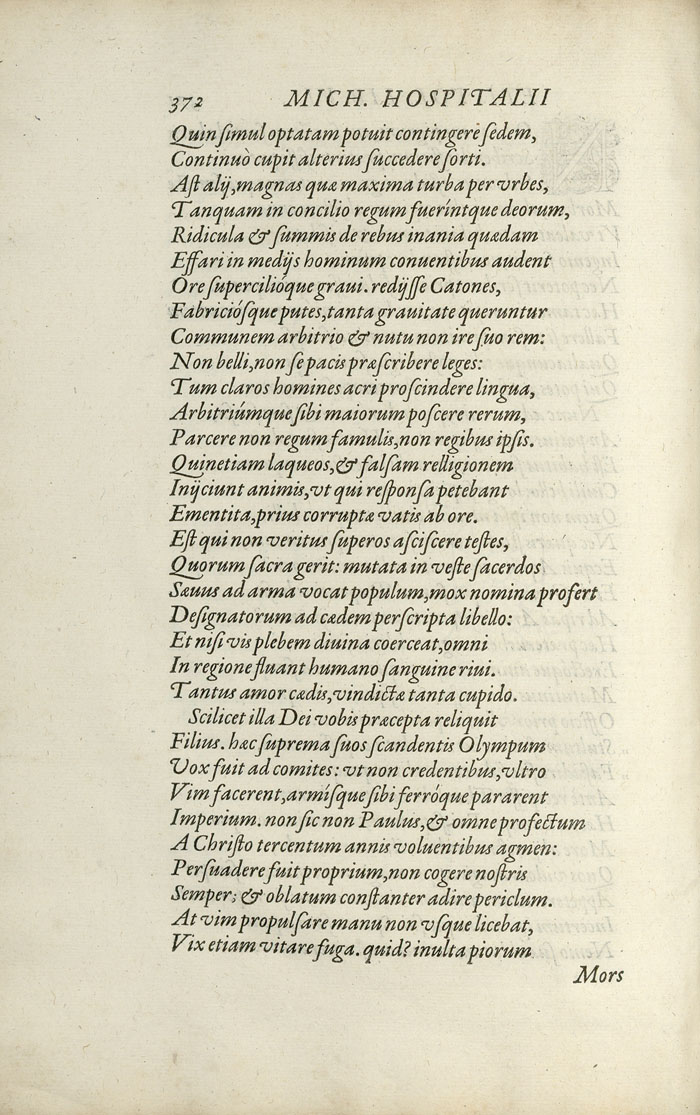 372 MICH. HOSPITALII
Quin ſimul optatam potuit contingere ſedem,
Continuò cupit alterius ſuccedere ſorti.
Aſt alij, magnas quæ maxima turba per vrbes,
Tanquam in concilio regum fueríntque deorum,
Ridicula & ſummis de rebus inania quædam
Effari in medijs hominum conuentibus audent
Ore ſupercilióque graui. redijſſe Catones,
Fabricióſque putes, tanta grauitate queruntur
Communem arbitrio & nutu non ire ſuo rem:
Non belli, non ſe pacis præſcribere leges:
Tum claros homines acri proſcindere lingua,
Arbitriúmque ſibi maiorum poſcere rerum,
Parcere non regum famulis, non regibus ipſis.
Quinetiam laqueos, & falſam relligionem
Inijciunt animis, vt qui reſponſa petebant
Ementita, prius corruptæ vatis ab ore.
Eſt qui non veritus ſuperos aſciſcere teſtes,
Quorum ſacra gerit: mutata in veſte ſacerdos
Sæuus ad arma vocat populum, mox nomina profert
Deſignatorum ad cædem perſcripta libello:
Et niſi vis plebem diuina coerceat, omni
In regione fluant humano ſanguine riui.
Tantus amor cædis, vindictæ tanta cupido.
Scilicet illa Dei vobis præcepta reliquit
Filius. hæc ſuprema ſuos ſcandentis Olympum
Vox fuit ad comites: vt non credentibus, vltro
Vim facerent, armíſque ſibi ferróque pararent
Imperium. non ſic non Paulus, & omne profectum
A Chriſto tercentum annis voluentibus agmen:
Perſuadere fuit proprium, non cogere noſtris
Semper; & oblatum conſtanter adire periclum.
At vim propulſare manu non vſque licebat,
Vix etiam vitare fuga. quid? inulta piorum
Mors